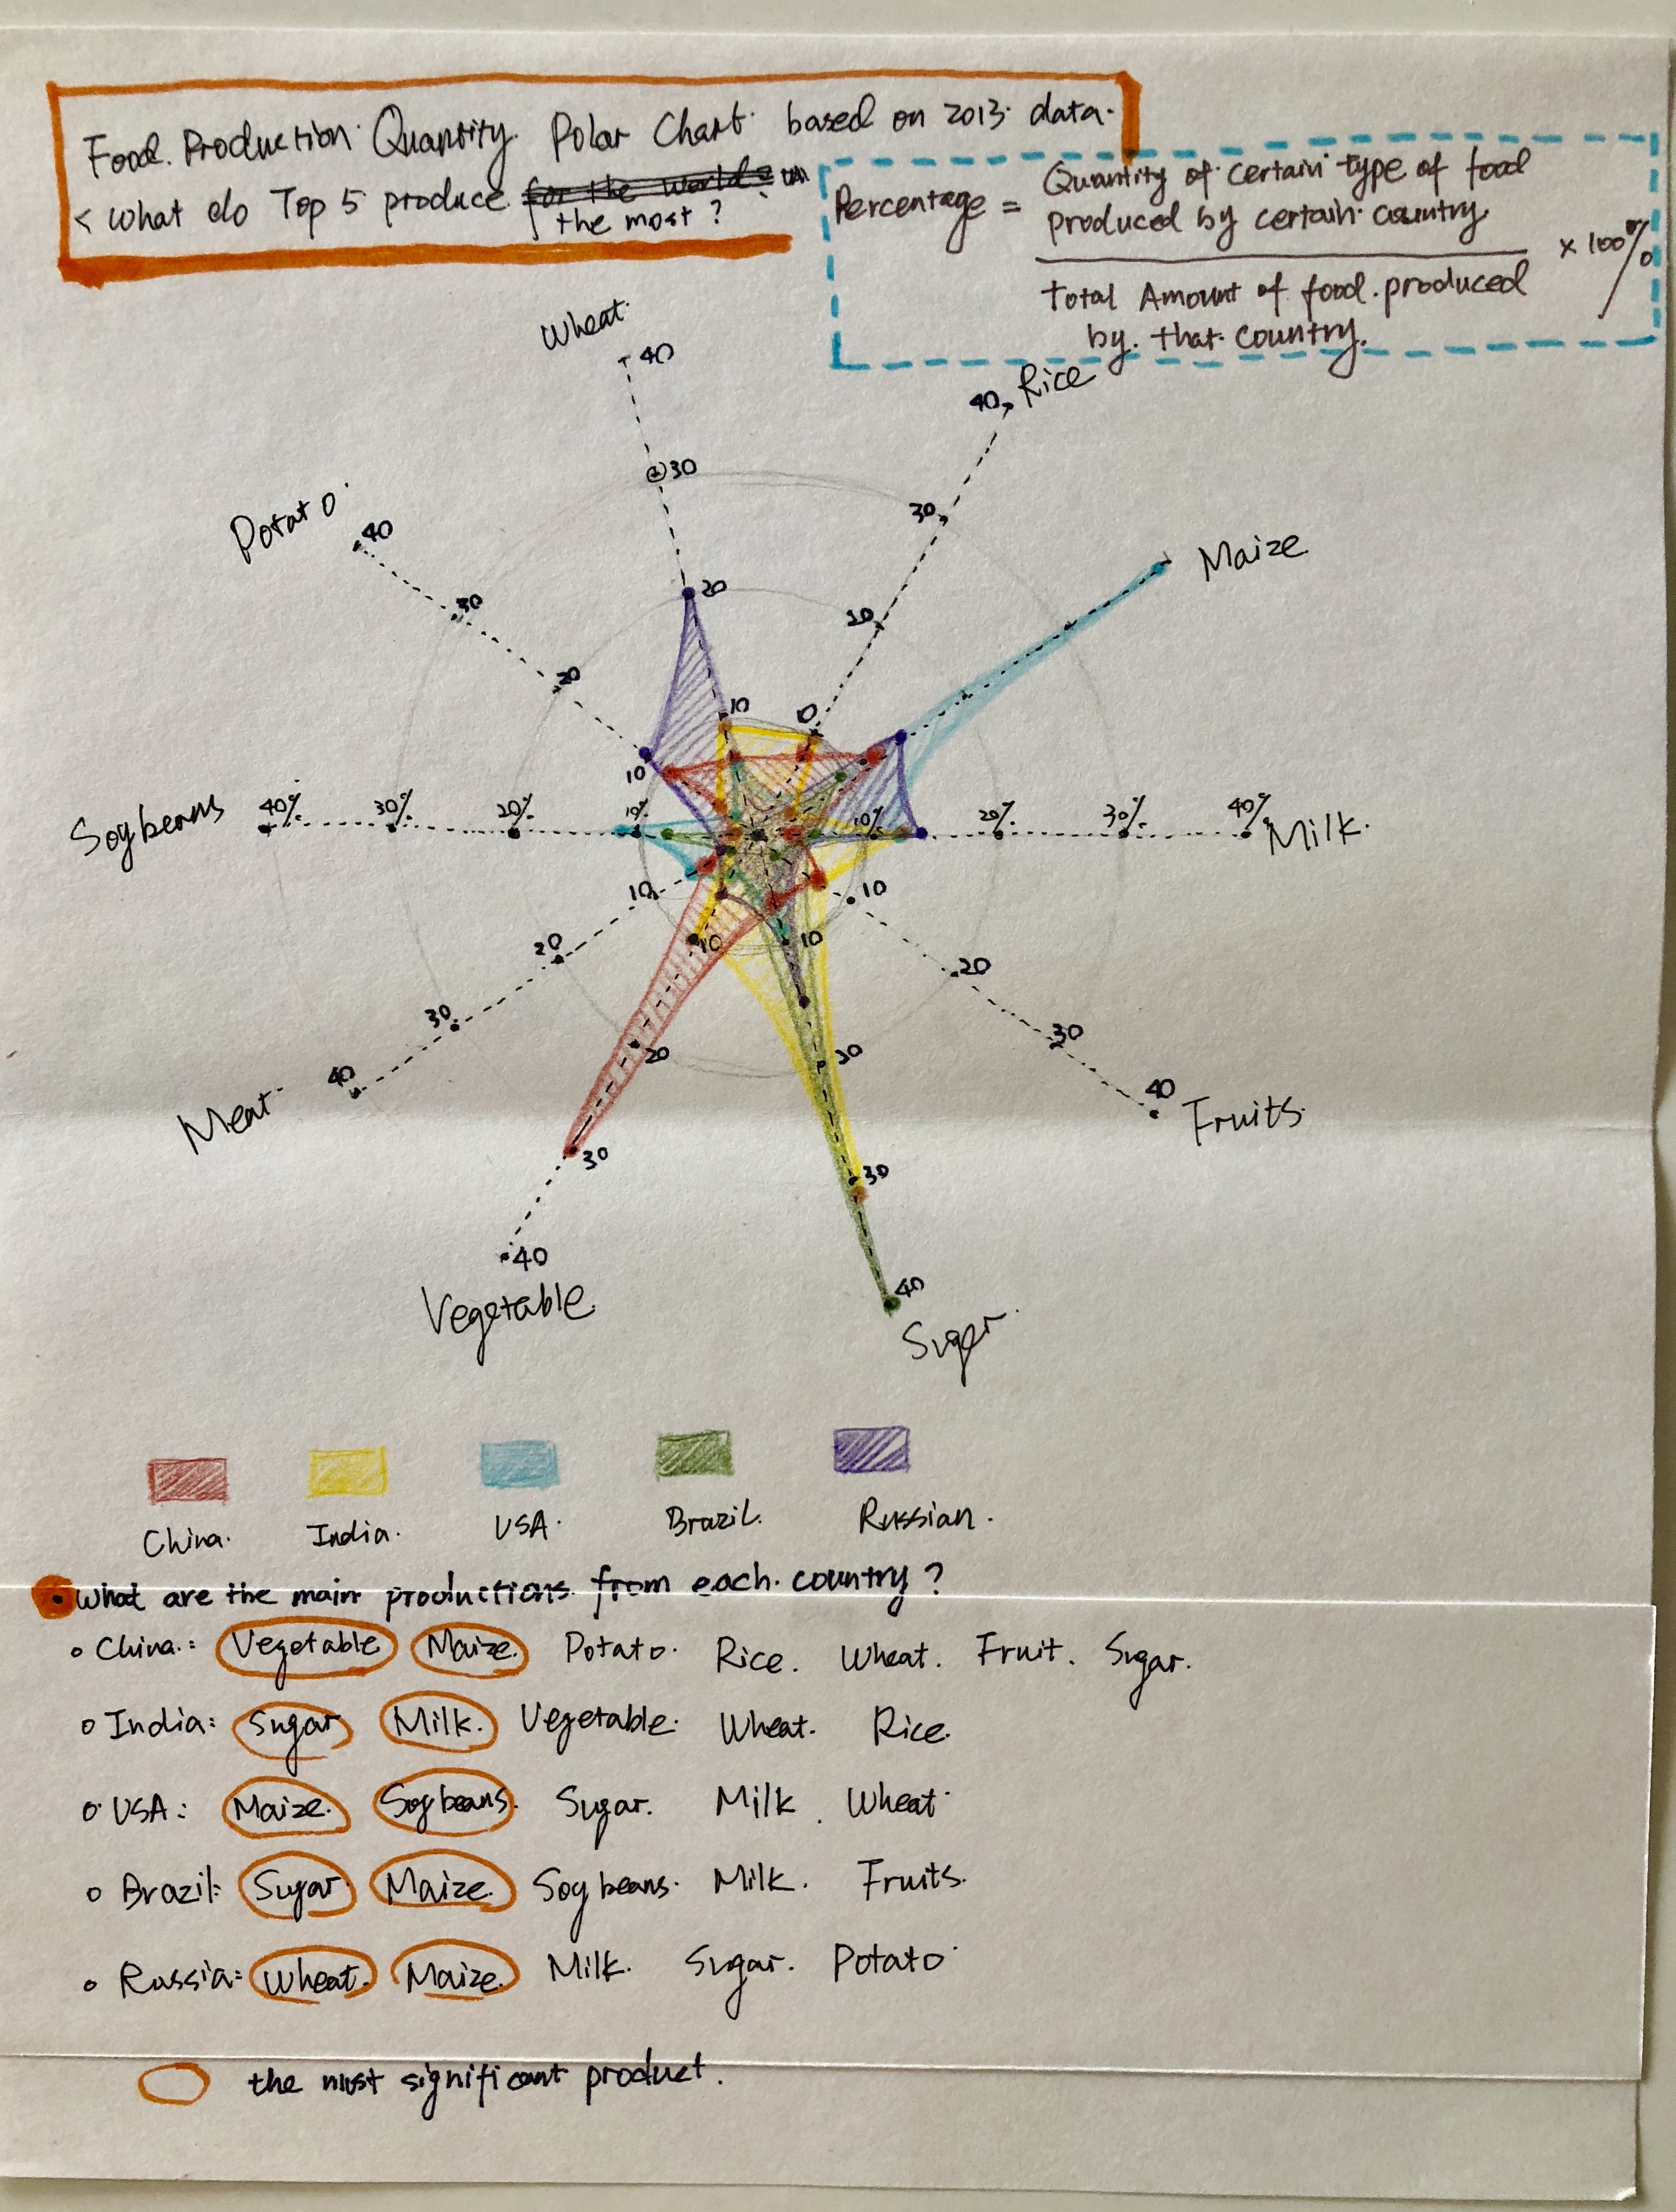 Food Production Quantity Polar Chart based on 2013 data.
< What do Top 5 produce for the world?
the most ?
Percentage = Quantity of certain type of food
produced by certain country
× 100%
Total Amount of food produced
by that country.
Wheat
40
30
20
10
Rice
40
30
20
10
Maize
Potato
40
30
20
10
Soybeans
40% 30% 20% 10%
10% 20% 30% 40%
Milk
Meat
40
30
20
10
Fruits
10
20
30
40
Vegetable
10
20
30
40
Sugar
10
20
30
40
China. India. USA. Brazil. Russian.
What are the main productions from each country ?
China: Vegetable Maize. Potato. Rice. Wheat. Fruit. Sugar.
India: Sugar Milk. Vegetable. Wheat. Rice.
USA: Maize. Soybeans. Sugar. Milk. Wheat
Brazil: Sugar Maize. Soybeans. Milk. Fruits.
Russia: Wheat. Maize. Milk. Sugar. Potato
the most significant product.